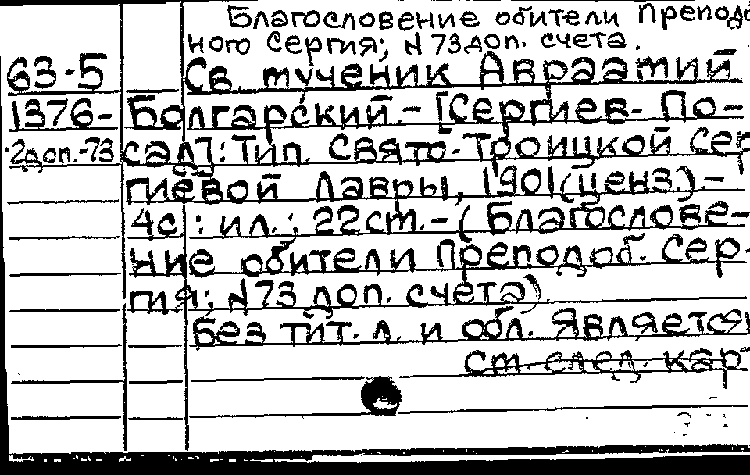 Благословение обители Преподоб
ного Сергия; N 73 доп. счета.
63-5 Св. мученик Авраамий
1376- Болгарский. - [Сергиев-По-
2доп.-73 сад]: Тип. Свято-Троицкой Сер
гиевой Лавры, 1901(ценз.).-
4с.: ил.; 22см. - (Благослове-
ние обители Преподоб. Сер-
гия; N73 доп. счета)
Без тит. л. и обл. Является
см. след. кар